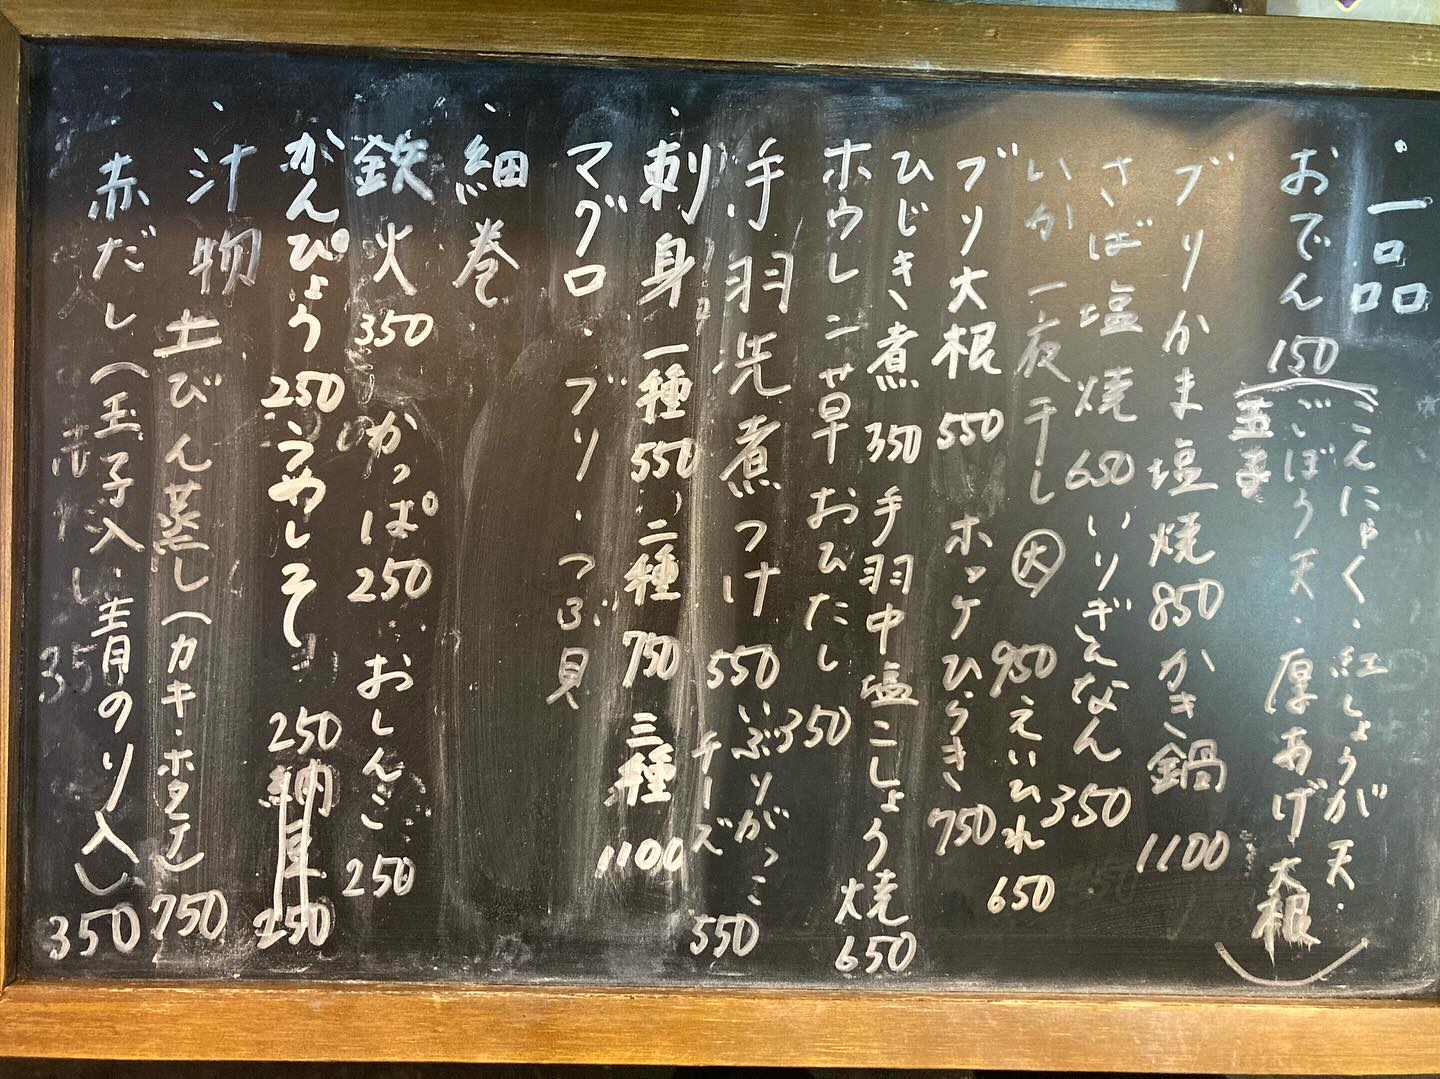 ・一品
おでん 150
(こんにゃく・紅しょうが天・
ごぼう天・厚あげ大根)
玉子
ブリかま塩焼 850 かき鍋 1100
さば塩焼 650 いりぎんなん 350
いか一夜干し 大 950 えいひれ 650
ブリ大根 550 ホッケひらき 750
ひじき煮 350 手羽中塩こしょう焼 650
ホウレン草おひたし 350
手羽先煮つけ 550 いぶりがっこ
チーズ 550
・刺身 一種 550 、二種 750 三種 1100
マグロ・ブリ・つぶ貝
・細巻
鉄火 350 かっぱ 250 おしんこ 250
かんぴょう 250 うめしそ 250 納豆 250
・汁物 土びん蒸し(カキ・ホタテ) 750
赤だし(玉子入・青のり入) 350